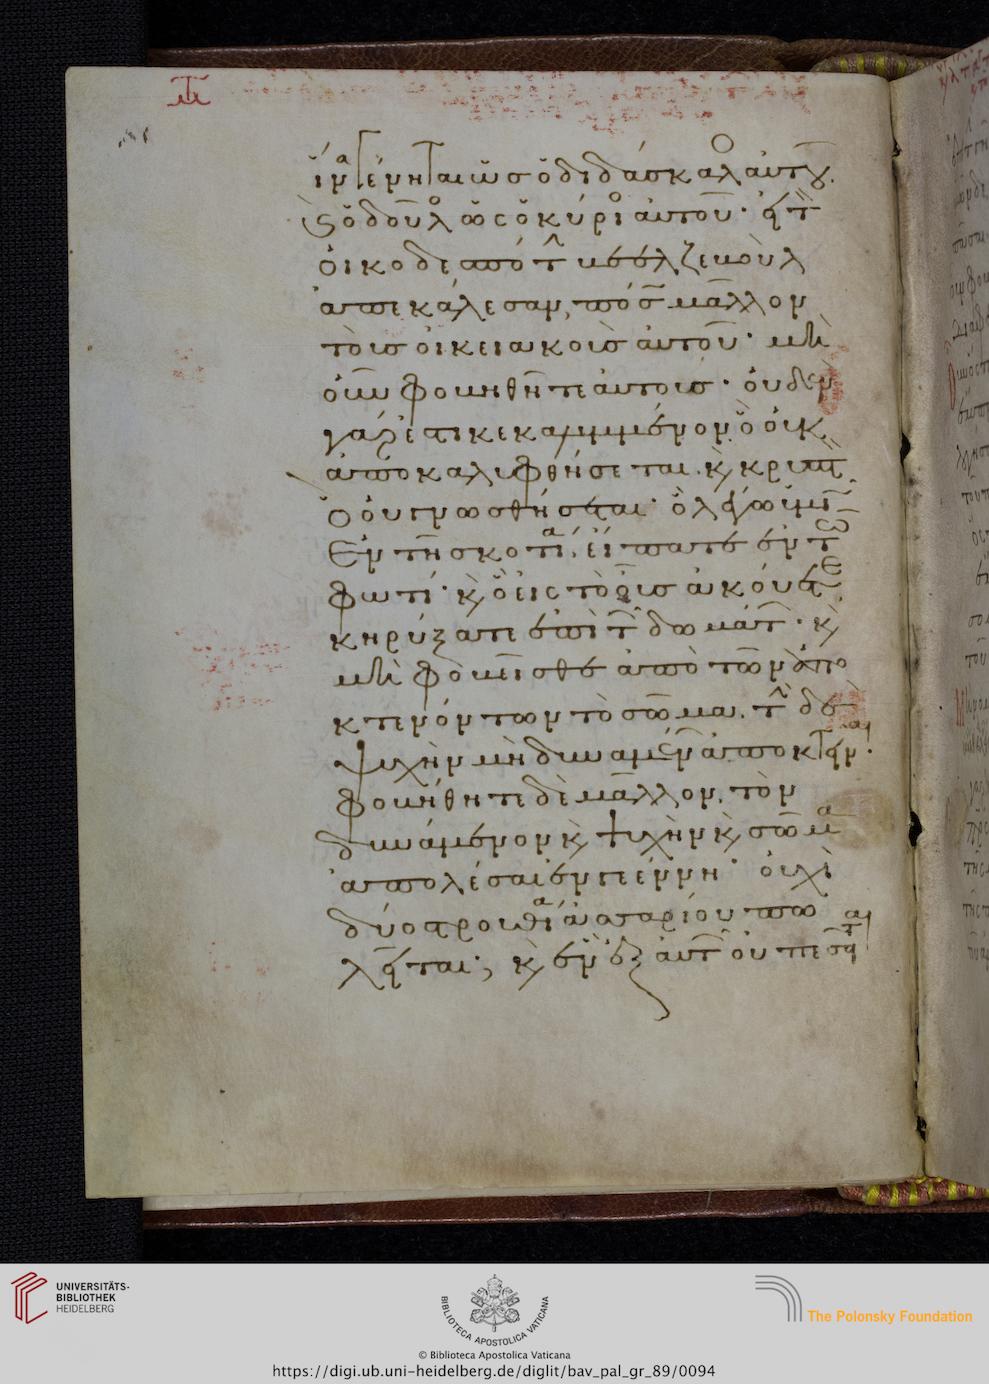 ἵνα γένηται ὡς ὁ διδάσκαλο αὐτοῦ.
ὁ δοῦλο ὡς ὁ κύριο αὐτοῦ· εἰ τ
οἰκοδεσπότ βεελζεβοὺλ
ἀπεκάλεσαν, πόσ μᾶλλον
τοὺς οἰκειακοὺς αὐτοῦ· μὴ
οὖν φοβηθῆτε αὐτούς· οὐδὲν
γάρ ἐστι κεκαλυμμένον ὃ οὐκ
ἀποκαλυφθήσεται. κ κρυπτ
ὃ οὐ γνωσθήσεται· ὃ λέγω ὑμῖ
ἐν τῇ σκοτία, εἴπατε ἐν τῶ
φωτί· κ ὃ εἰς τὸ οὖς ἀκούετε
κηρύξατε ἐπὶ τ δωμάτ· κ
μὴ φοβεῖσθε ἀπὸ τῶν ἀπο
κτενόντων τὸ σῶμα. τ δὲ
ψυχὴν μὴ δυναμέν ἀποκτεῖναι·
φοβήθητε δὲ μᾶλλον, τὸν
δυνάμενον κ ψυχὴν κ σῶμα
ἀπολέσαι ἐν γεέννη· οὐχὶ
δύο στρουθία ἀσσαρίου πω
λεῖται; κ ἓν ἐξ αὐτ οὐ πεσεῖται
UNIVERSITÄTS-
BIBLIOTHEK
HEIDELBERG
BIBLIOTECA APOSTOLICA VATICANA
The Polonsky Foundation
© Biblioteca Apostolica Vaticana
https://digi.ub.uni-heidelberg.de/diglit/bav_pal_gr_89/0094